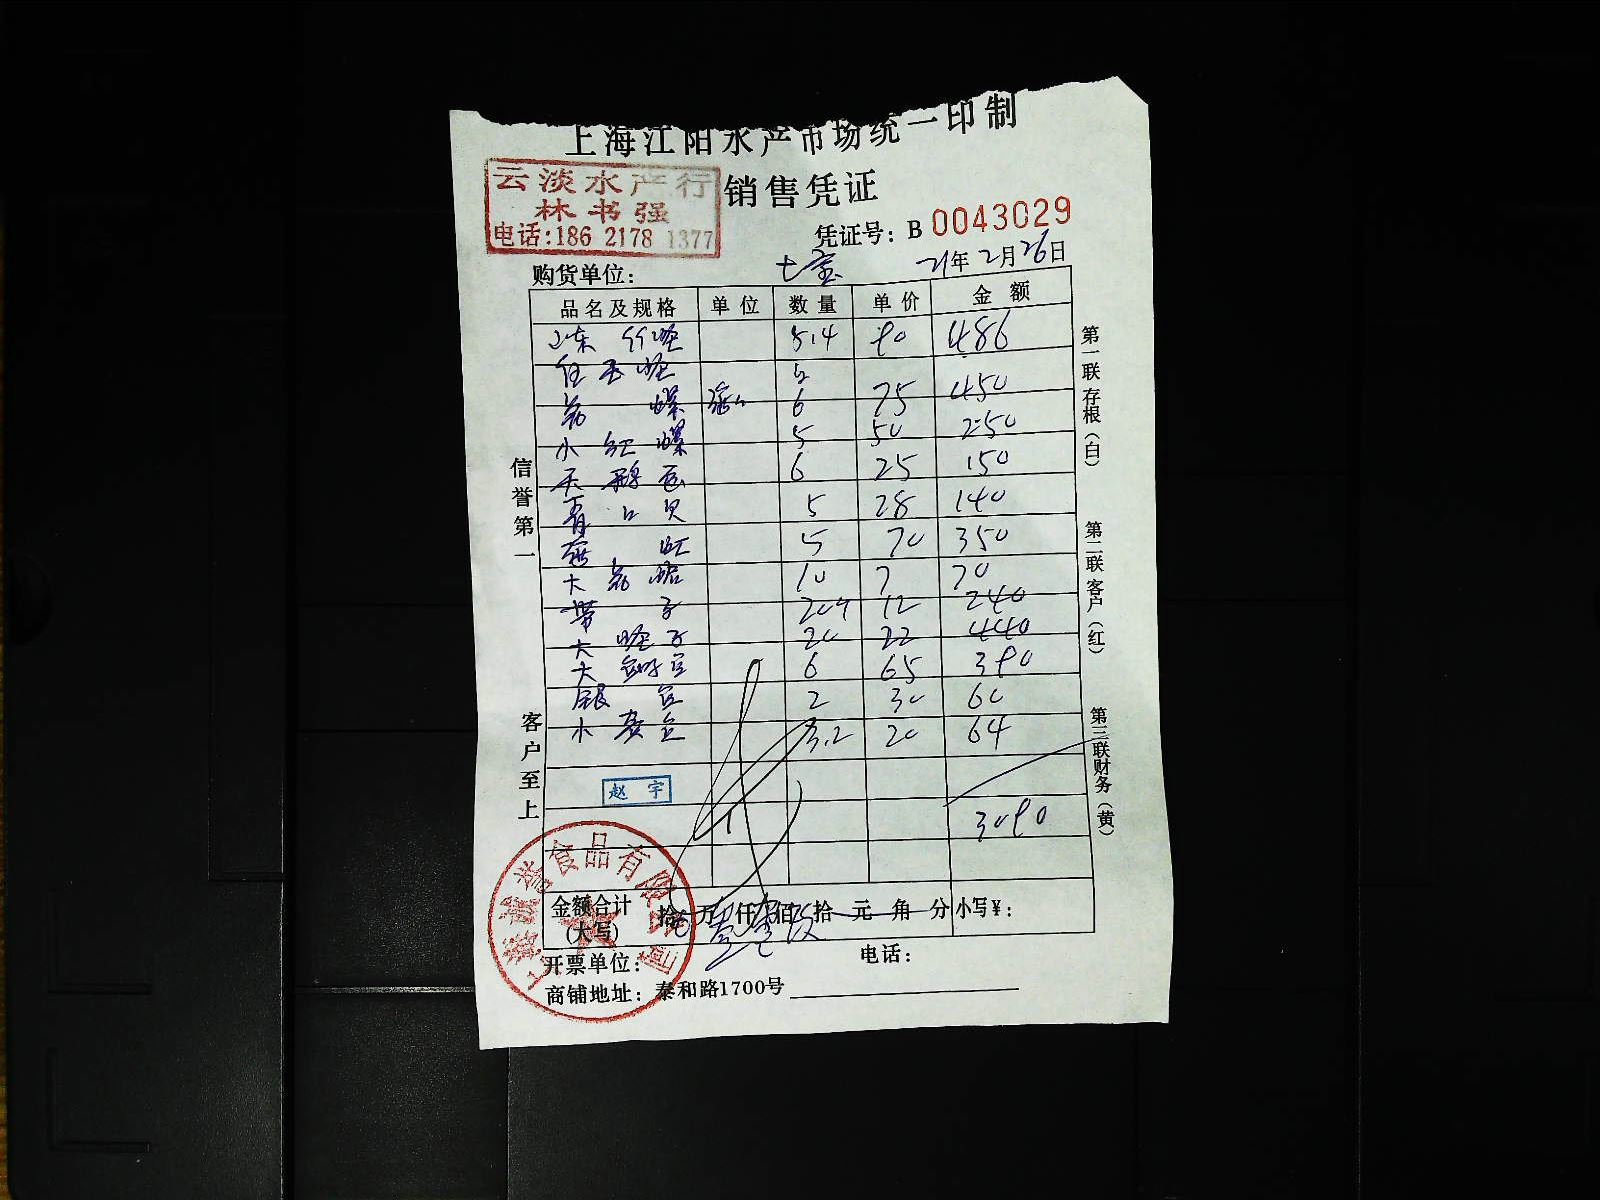 上海江阳水产市场统一印制
云淡水产行
林书强
电话:186 2178 1377
销售凭证
凭证号: B 0043029
购货单位: 七宝 21年2月26日
品名及规格 单位 数量 单价 金额
5.4 90 486
5
6 75 450
小红螺 5 50 250
天鹅 6 25 150
青口贝 5 28 140
虹 5 70 350
大花蛤 10 7 70
带子 20 12 240
大蛏子 20 22 440
大 6 65 390
银 2 30 60
小黄 3.2 20 64
赵宇
3090
金额合计(大写) 拾 万 仟 佰 拾 元 角 分 小写¥:
开票单位: 电话:
商铺地址: 泰和路1700号
信誉第一
客户至上
第一联存根(白)
第二联客户(红)
第三联财务(黄)
上海 诚誉食品有限公司